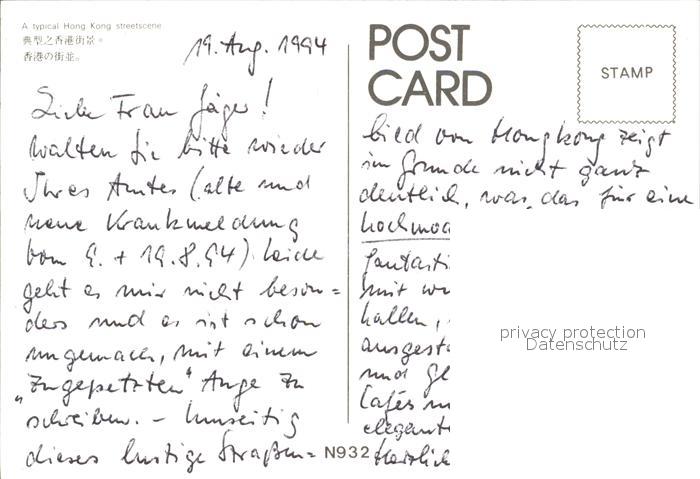 A typical Hong Kong streetscene
典型之香港街景。
香港の街並。
19. Aug. 1994
Liebe Frau Jäger!
Walten Sie bitte wieder
Ihres Amtes (alte und
neue Krankmeldung
vom 9. + 19.8.94) Leider
geht es mir nicht beson=
ders und es ist schon
ungemach, mit einem
„zugepetzten" Auge zu
schreiben. – Umseitig
dieses lustige Straßen=
N932
POST
CARD
STAMP
bild von Hongkong zeigt
im Grunde nicht ganz
deutlich, was das für eine
hochmo
fantasti
mit
hallen,
ausgest
und gl
Cafés
elegant
Herzlich
privacy protection
Datenschutz